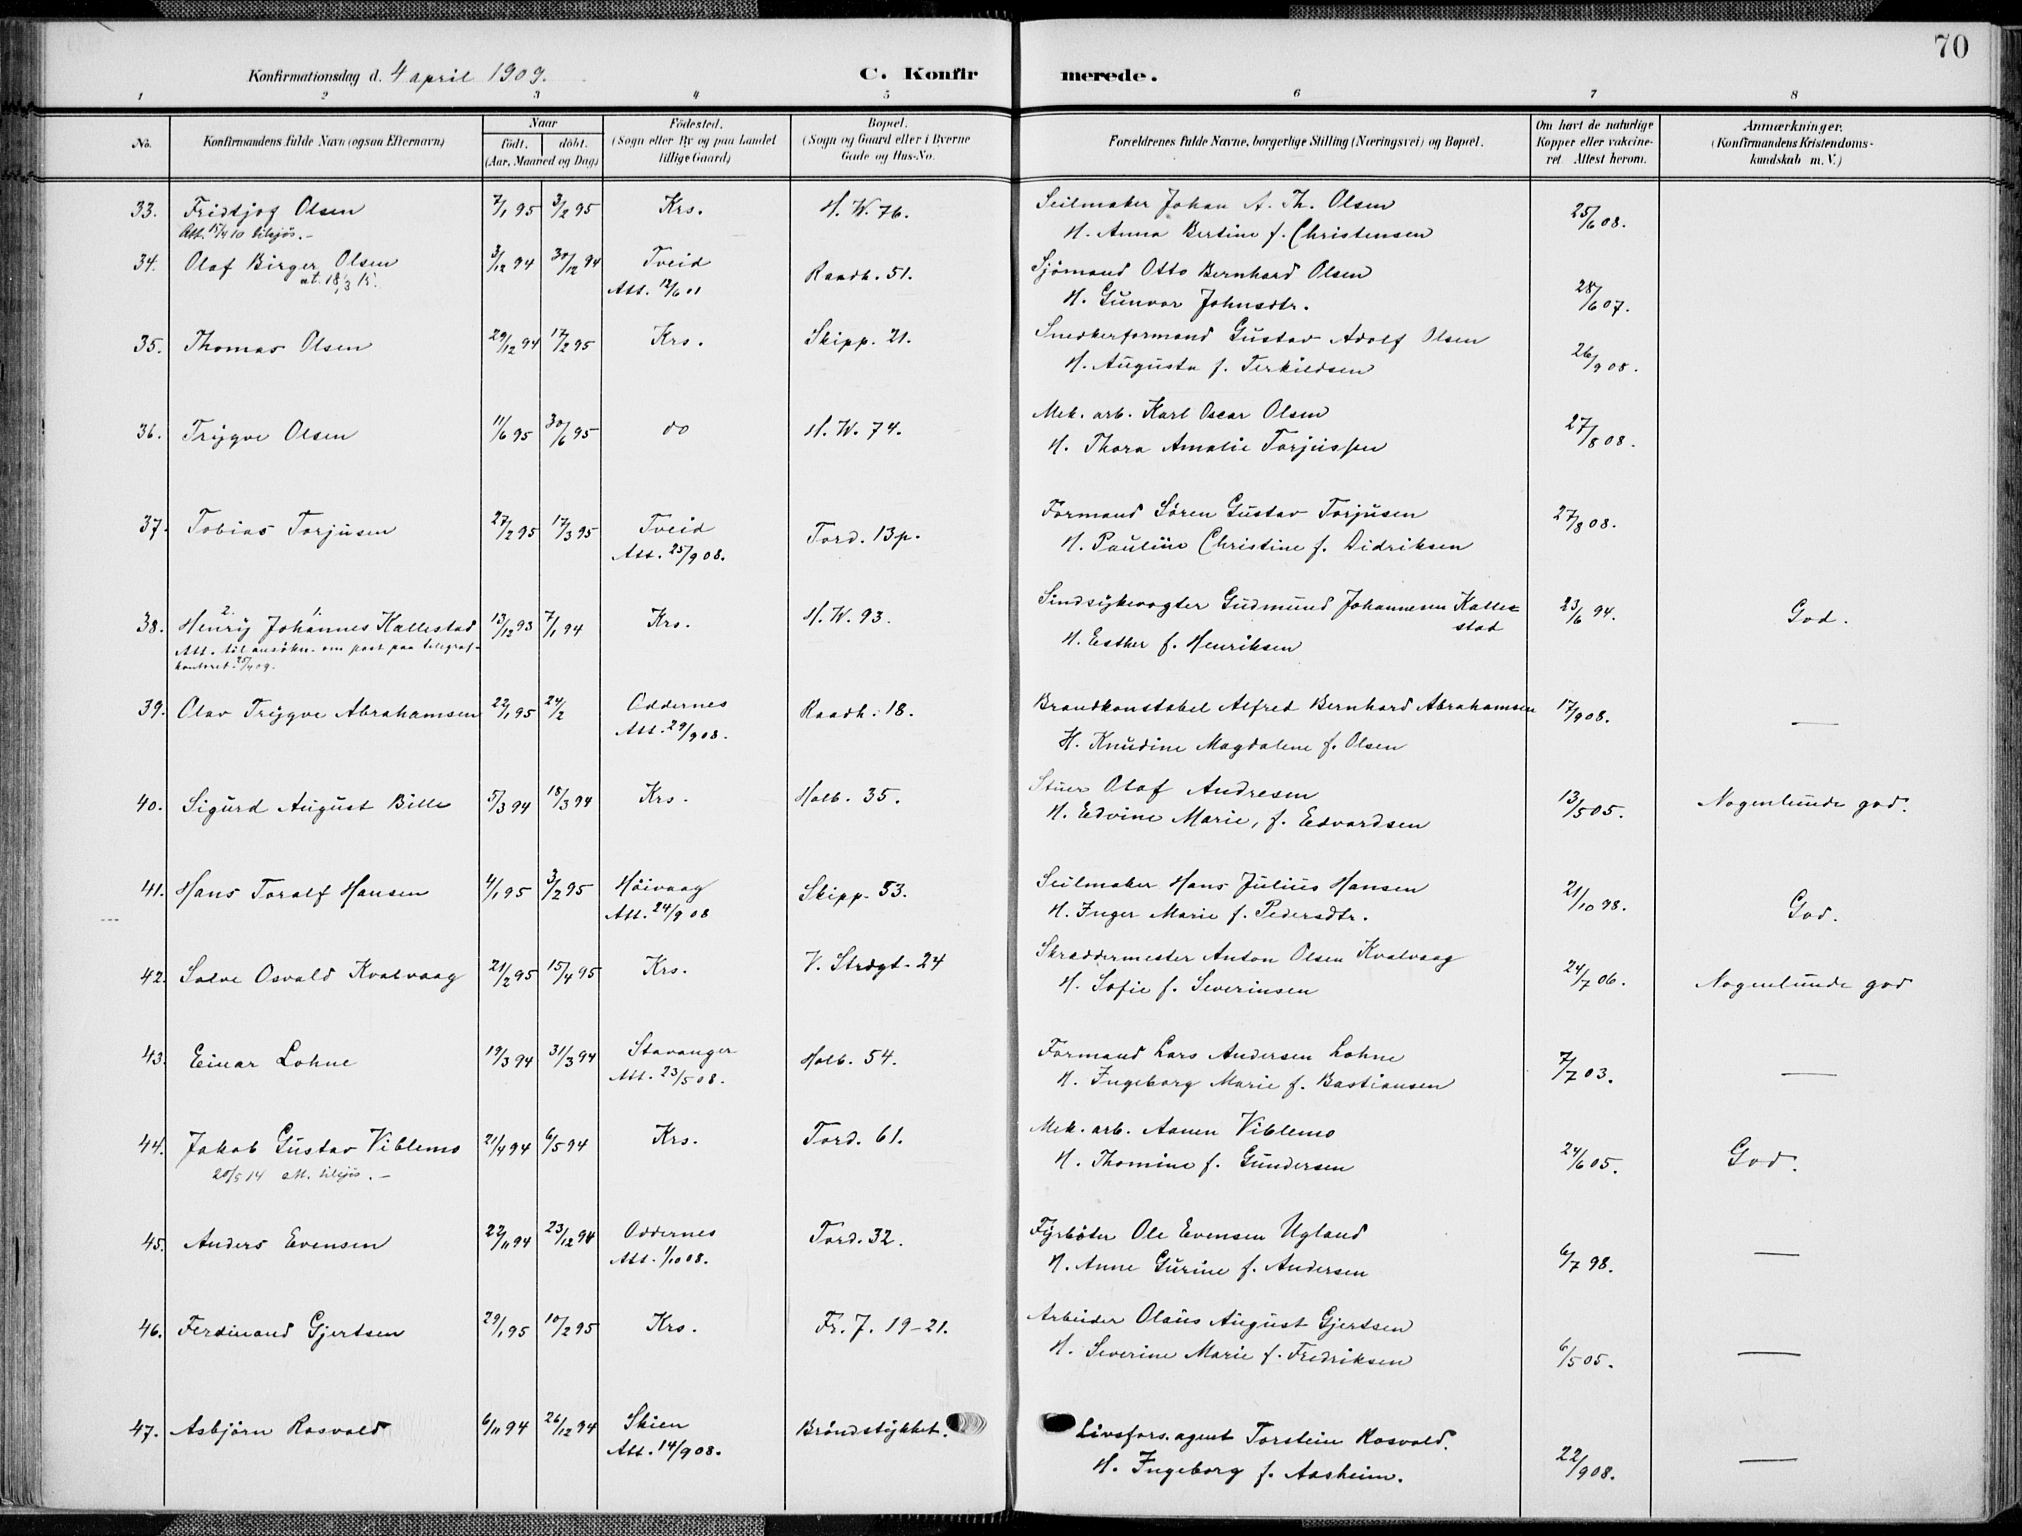 70
Konfirmationsdag d. 4 april 1909. C. Konfirmerede.
1 2 3 4 5 6 7 8
No. Konfirmandens fulde Navn (ogsaa Efternavn) Naar født. døbt. (Aar, Maaned og Dag) Fødested. (Sogn eller By og paa Landet tillige Gaard) Bopæl. (Sogn og Gaard eller i Byerne Gade og Hus-No. Forældrenes fulde Navne, borgerlige Stilling (Næringsvei) og Bopæl. Om havt de naturlige Kopper eller vakcineret. Attest herom. Anmærkninger. (Konfirmandens Kristendomskundskab m. V.)
33. Fridtjof Olsen 7/1 95 3/2 95 Krs. H. W. 76. Seilmaker Johan A. Th. Olsen 25/6 08.
Att. 15/4 10 tilsjøs.- H. Anna Bertine f. Christensen
34. Olaf Birger Olsen 3/12 94 30/12 94 Tveid Raadh. 51. Sjømand Otto Bernhard Olsen 28/6 07.
at. 18/3 15. Att. 12/6 01 H. Gunvor Johnsdtr.
35. Thomas Olsen 29/12 94 17/2 95 Krs. Skipp. 21. Snedkerformand Gustav Adolf Olsen 26/9 08.
H. Augusta f. Terkildsen
36. Trygve Olsen 11/6 95 30/6 95 do H. W. 74. Mek. arb. Karl Oscar Olsen 27/8 08.
H. Thora Amalie Torjussen
37. Tobias Torjusen 27/2 95 17/3 95 Tveid Tord. 13p. Formand Søren Gustav Torjusen 27/8 08.
Att. 25/9 08. H. Pauline Christine f. Didriksen
38. Henry 2. Johannes 1. Kallestad 13/12 93 7/1 94 Krs. H. W. 93. Sindsykevogter Gudmund Johannesen Kallestad 23/6 94. God.
Att. til ansökn. om post paa telegrafkontoret. 25/4 09. H. Esther f. Henriksen
39. Olav Trygve Abrahamsen 22/1 95 24/2 Oddernes Raadh. 18. Brandkonstabel Alfred Bernhard Abrahamsen 17/9 08. —
Att. 29/9 08. H. Knudine Magdalene f. Olsen
40. Sigurd August Bille 5/3 94 18/3 94 Krs. Holb. 35. Stuer Olaf Andresen 13/5 05. Nogenlunde god.
H. Edvine Marie, f. Edvardsen
41. Hans Toralf Hansen 4/1 95 3/2 95 Høivaag Skipp. 53. Seilmaker Hans Julius Hansen 21/10 98. God.
Att. 24/9 08 H. Inger Marie f. Pedersdtr.
42. Salve Osvald Kvalvaag 21/2 95 15/4 95 Krs. V. Strdgt. 24 Skraddermester Anton Olsen Kvalvaag 24/7 06. Nogenlunde god
H. Sofie f. Severinsen
43. Einar Lohne 19/3 94 31/3 94 Stavanger Holb. 54. Formand Lars Andersen Lohne 7/7 03. —
Att. 23/5 08. H. Ingeborg Marie f. Bastiansen
44. Jakob Gustav Viblemo 21/4 94 6/5 94 Krs. Tord. 61. Mek. arb. Aanen Viblemo 24/6 05. God.
20/5 14 att. tilsjøs.- H. Thomine f. Gundersen
45. Anders Evensen 22/11 94 23/12 94 Oddernes Tord. 32. Fyrbøter Ole Evensen Ugland 6/7 98. —
Att. 1/10 08. H. Anne Gurine f. Andersen
46. Ferdinand Gjertsen 29/1 95 10/2 95 Krs. Fr. 7. 19-21. Arbeider Olaus August Gjertsen 6/5 05. —
H. Severine Marie f. Fredriksen
47. Asbjørn Rosvold 6/11 94 26/12 94 Skien Brøndstykket. Livsfors. agent Torstein Rosvold. 22/9 08. —
Att. 14/9 08. H. Ingeborg f. Aasheim.